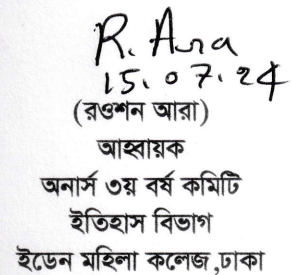 R. Ara
15.07.24
(রওশন আরা)
আহ্বায়ক
অনার্স ৩য় বর্ষ কমিটি
ইতিহাস বিভাগ
ইডেন মহিলা কলেজ,ঢাকা